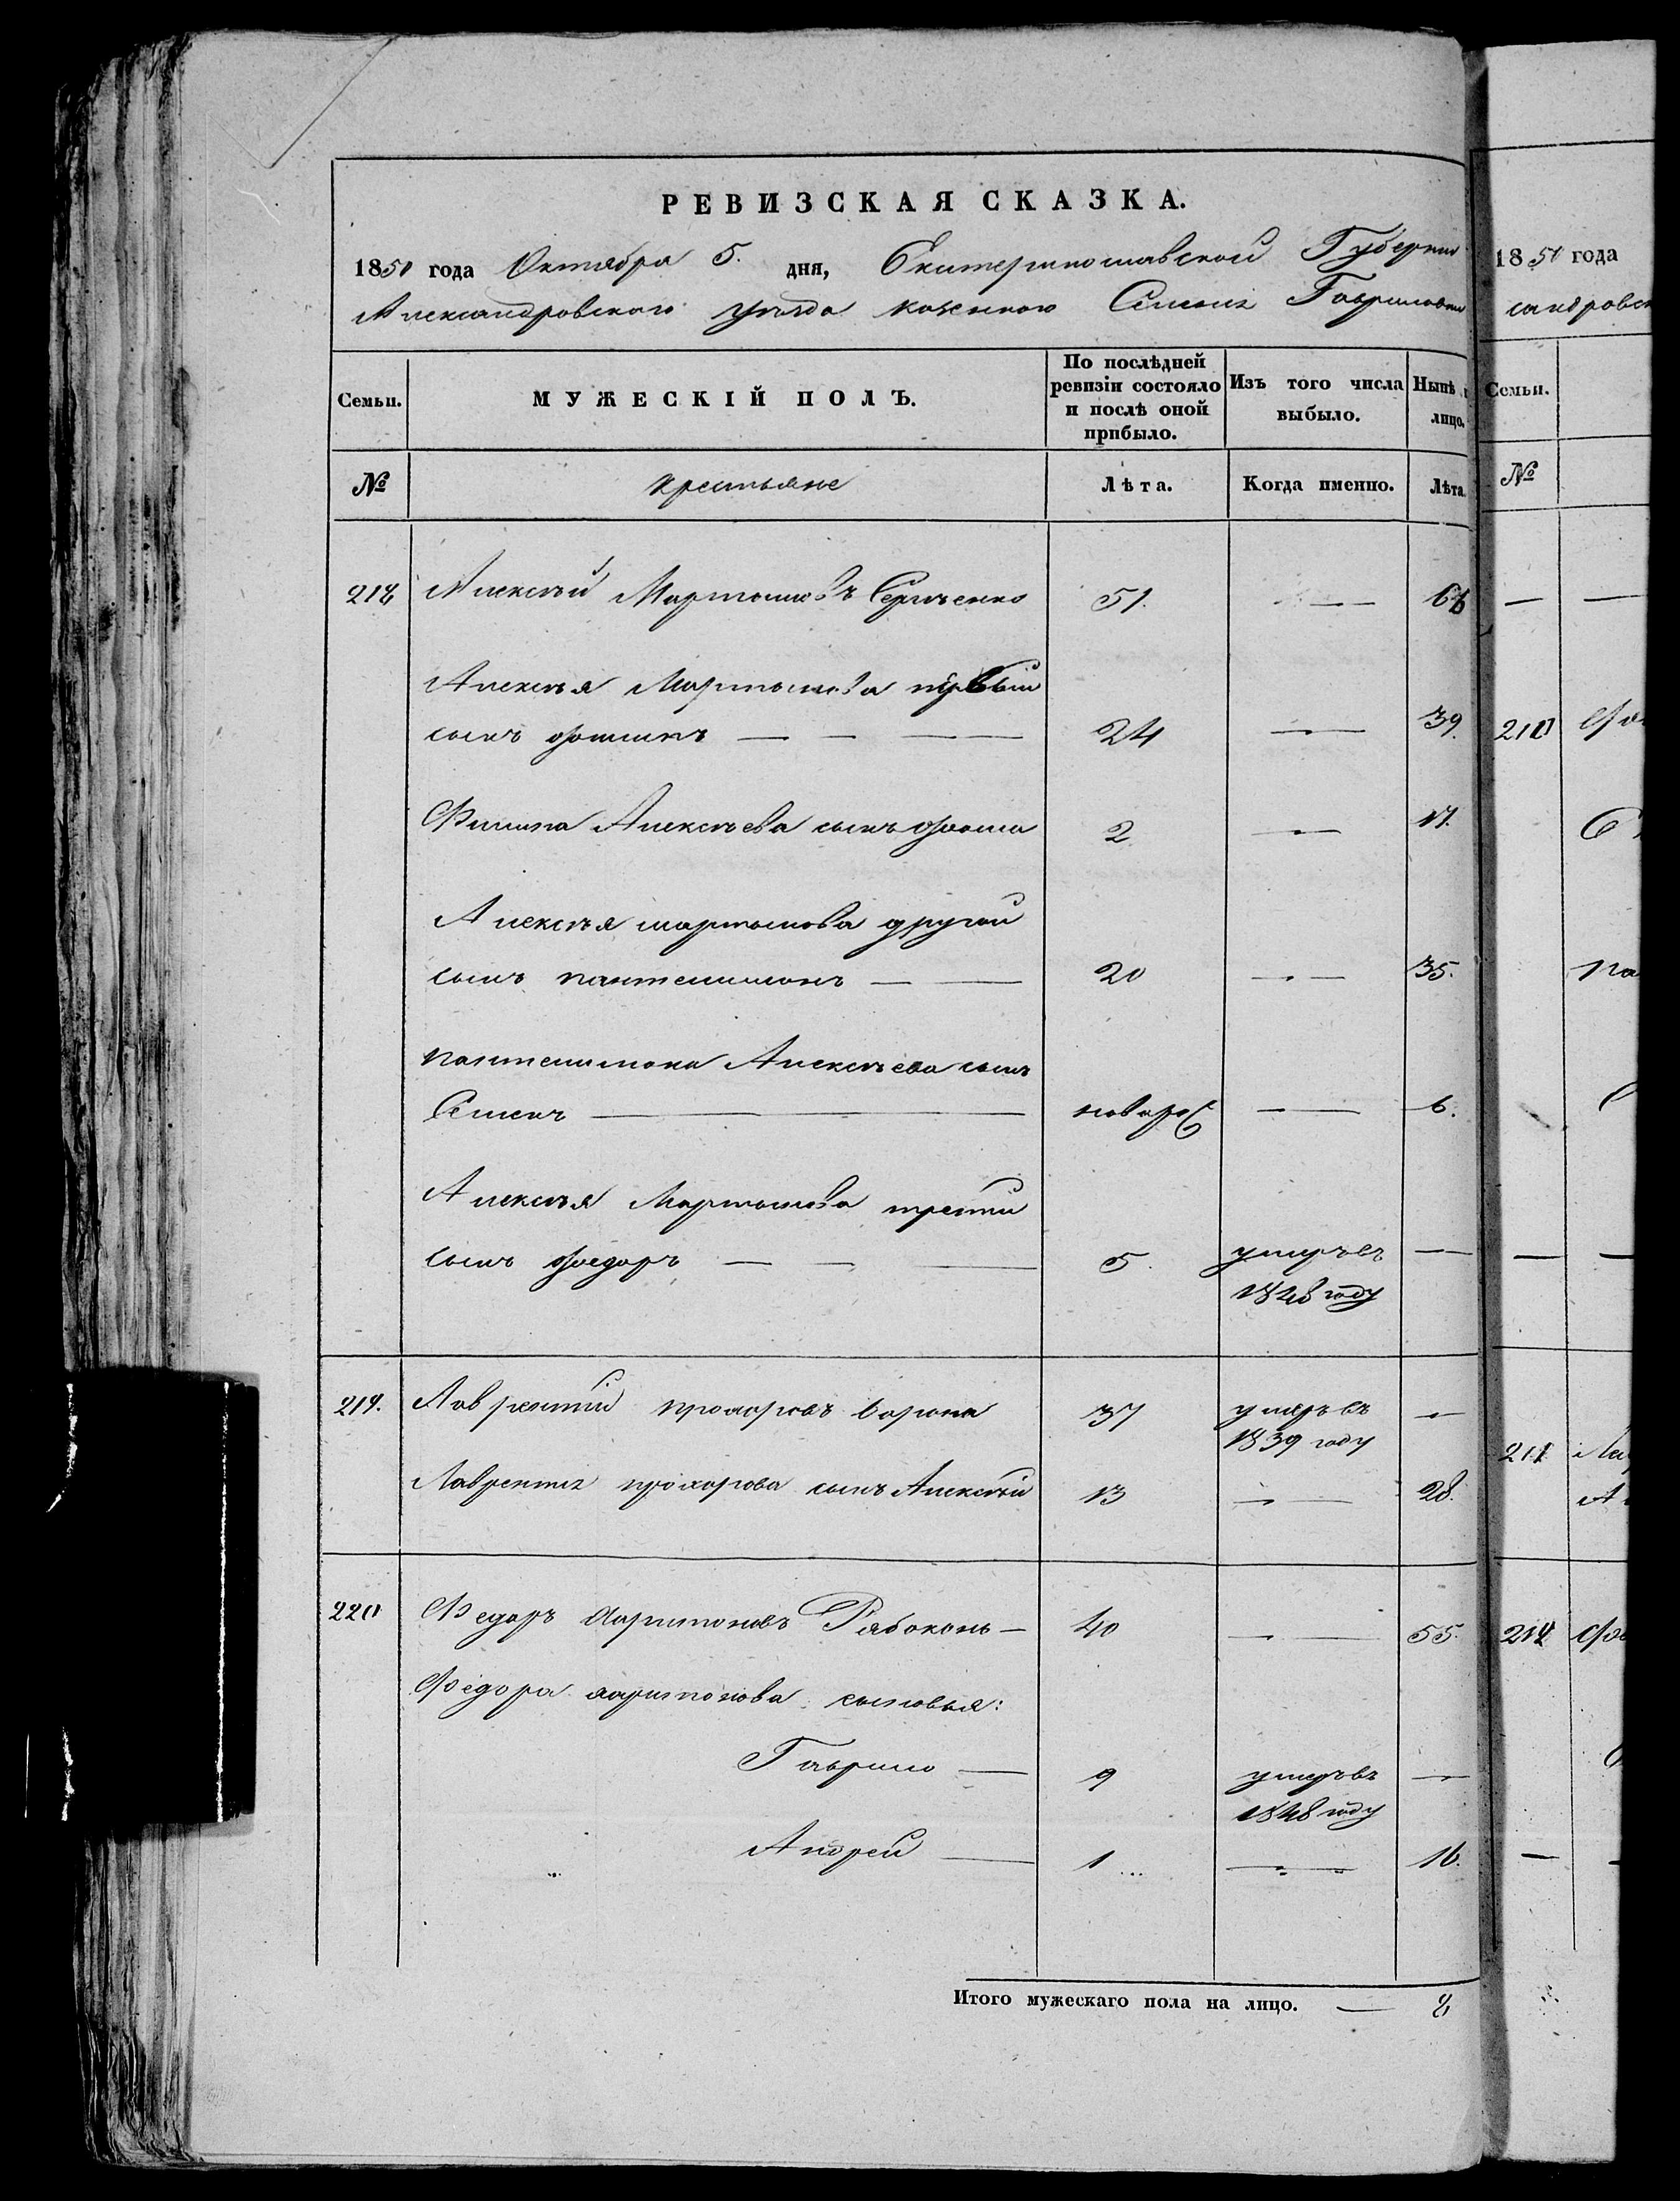 РЕВИЗСКАЯ СКАЗКА.
1850 года Октября 5. дня, Екатеринославской Губернии
Александровского уѣзда казенного Селенія Гавриловки
Семьи.
МУЖЕСКІЙ ПОЛЪ.
По послѣдней ревизіи состояло и послѣ оной прибыло.
Изъ того числа выбыло.
Нынѣ
лицо.
№ крестьяне Лѣта. Когда именно. Лѣта.
218 Алексѣй Мартыновъ Сергѣенко 51. — 66
Алексѣя Мартынова первый
сынъ Филипъ — — — 24 — 39.
Филипа Алексѣева сынъ Фома 2 — 17.
Алексѣя мартынова другой
сынъ пантелимонъ — — 20 — 35.
пантелимона Алексѣева сынъ
Семенъ — новорож — 6.
Алексѣя Мартынова третій
сынъ Федоръ — — — 5. умеръ въ —
1848 году
219. Лаврентій прохоровъ ворона 37 умеръ въ —
1839 году
Лаврентія прохорова сынъ Алексѣй 13 — 28.
220 Федоръ Харитоновъ Рябоконь — 40 — 55.
Федора харитонова сыновья:
Гаврило — 9 умеръ въ —
1848 году
Андрей — 1 — 16.
Итого мужескаго пола на лицо. — 8
1850 года
сандровск
Семьи.
№
210
211
212